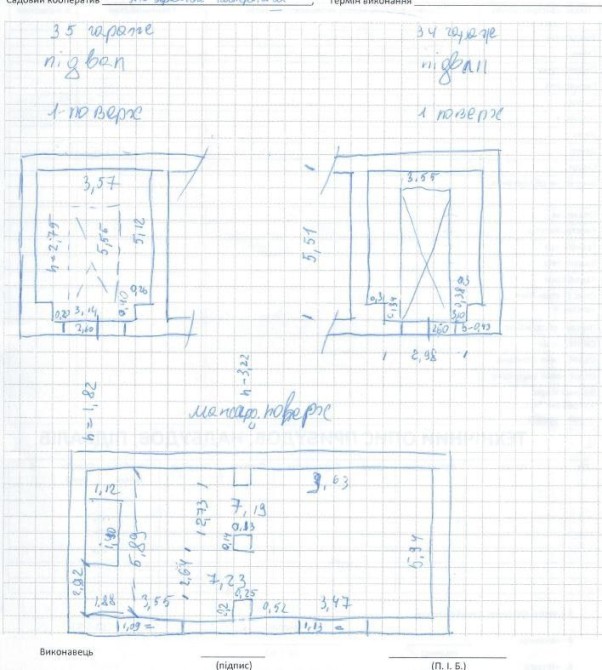 Садовий кооператив Термін виконання
35 гараж
підвал
1-поверх
34 гараж
підвал
1 поверх
3,57
h=2,75
5,56
5,12
0,20
0,40
0,20
3,14
2,60
5,51
3,55
0,31
0,38
3,10
2,60
2,98
h=1,82
h-3,22
мансард. поверх
1,12
1,90
5,89
2,73
7,19
0,13
0,14
3,63
5,94
2,64
7,23
0,25
0,52
3,47
1,88
3,55
1,09
1,13
Виконавець
(підпис)
(П. І. Б.)